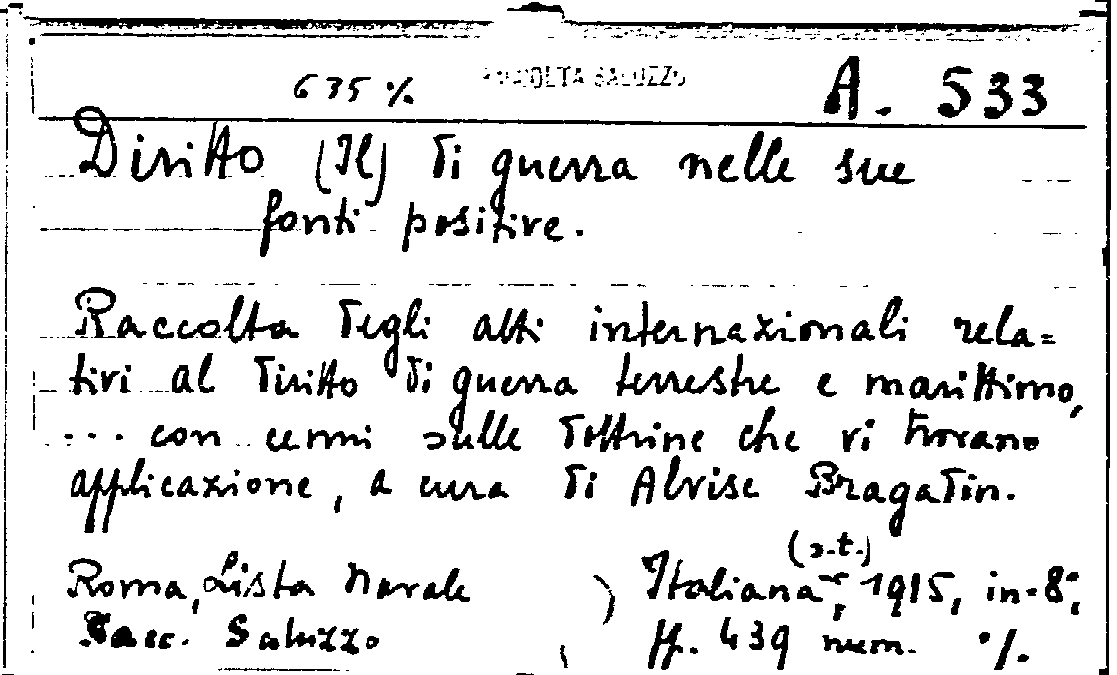 635 % RACCOLTA SALUZZO A. 533
Diritto (Il) di guerra nelle sue
fonti positive.
Raccolta degli atti internazionali rela=
tivi al diritto di guerra terrestre e marittimo,
... con cenni sulle dottrine che vi trovano
applicazione, a cura di Alvise Bragadin.
(s.t.)
Roma, Lista Navale Italiana, 1915, in-8°,
Racc. Saluzzo pp. 439 num. %.